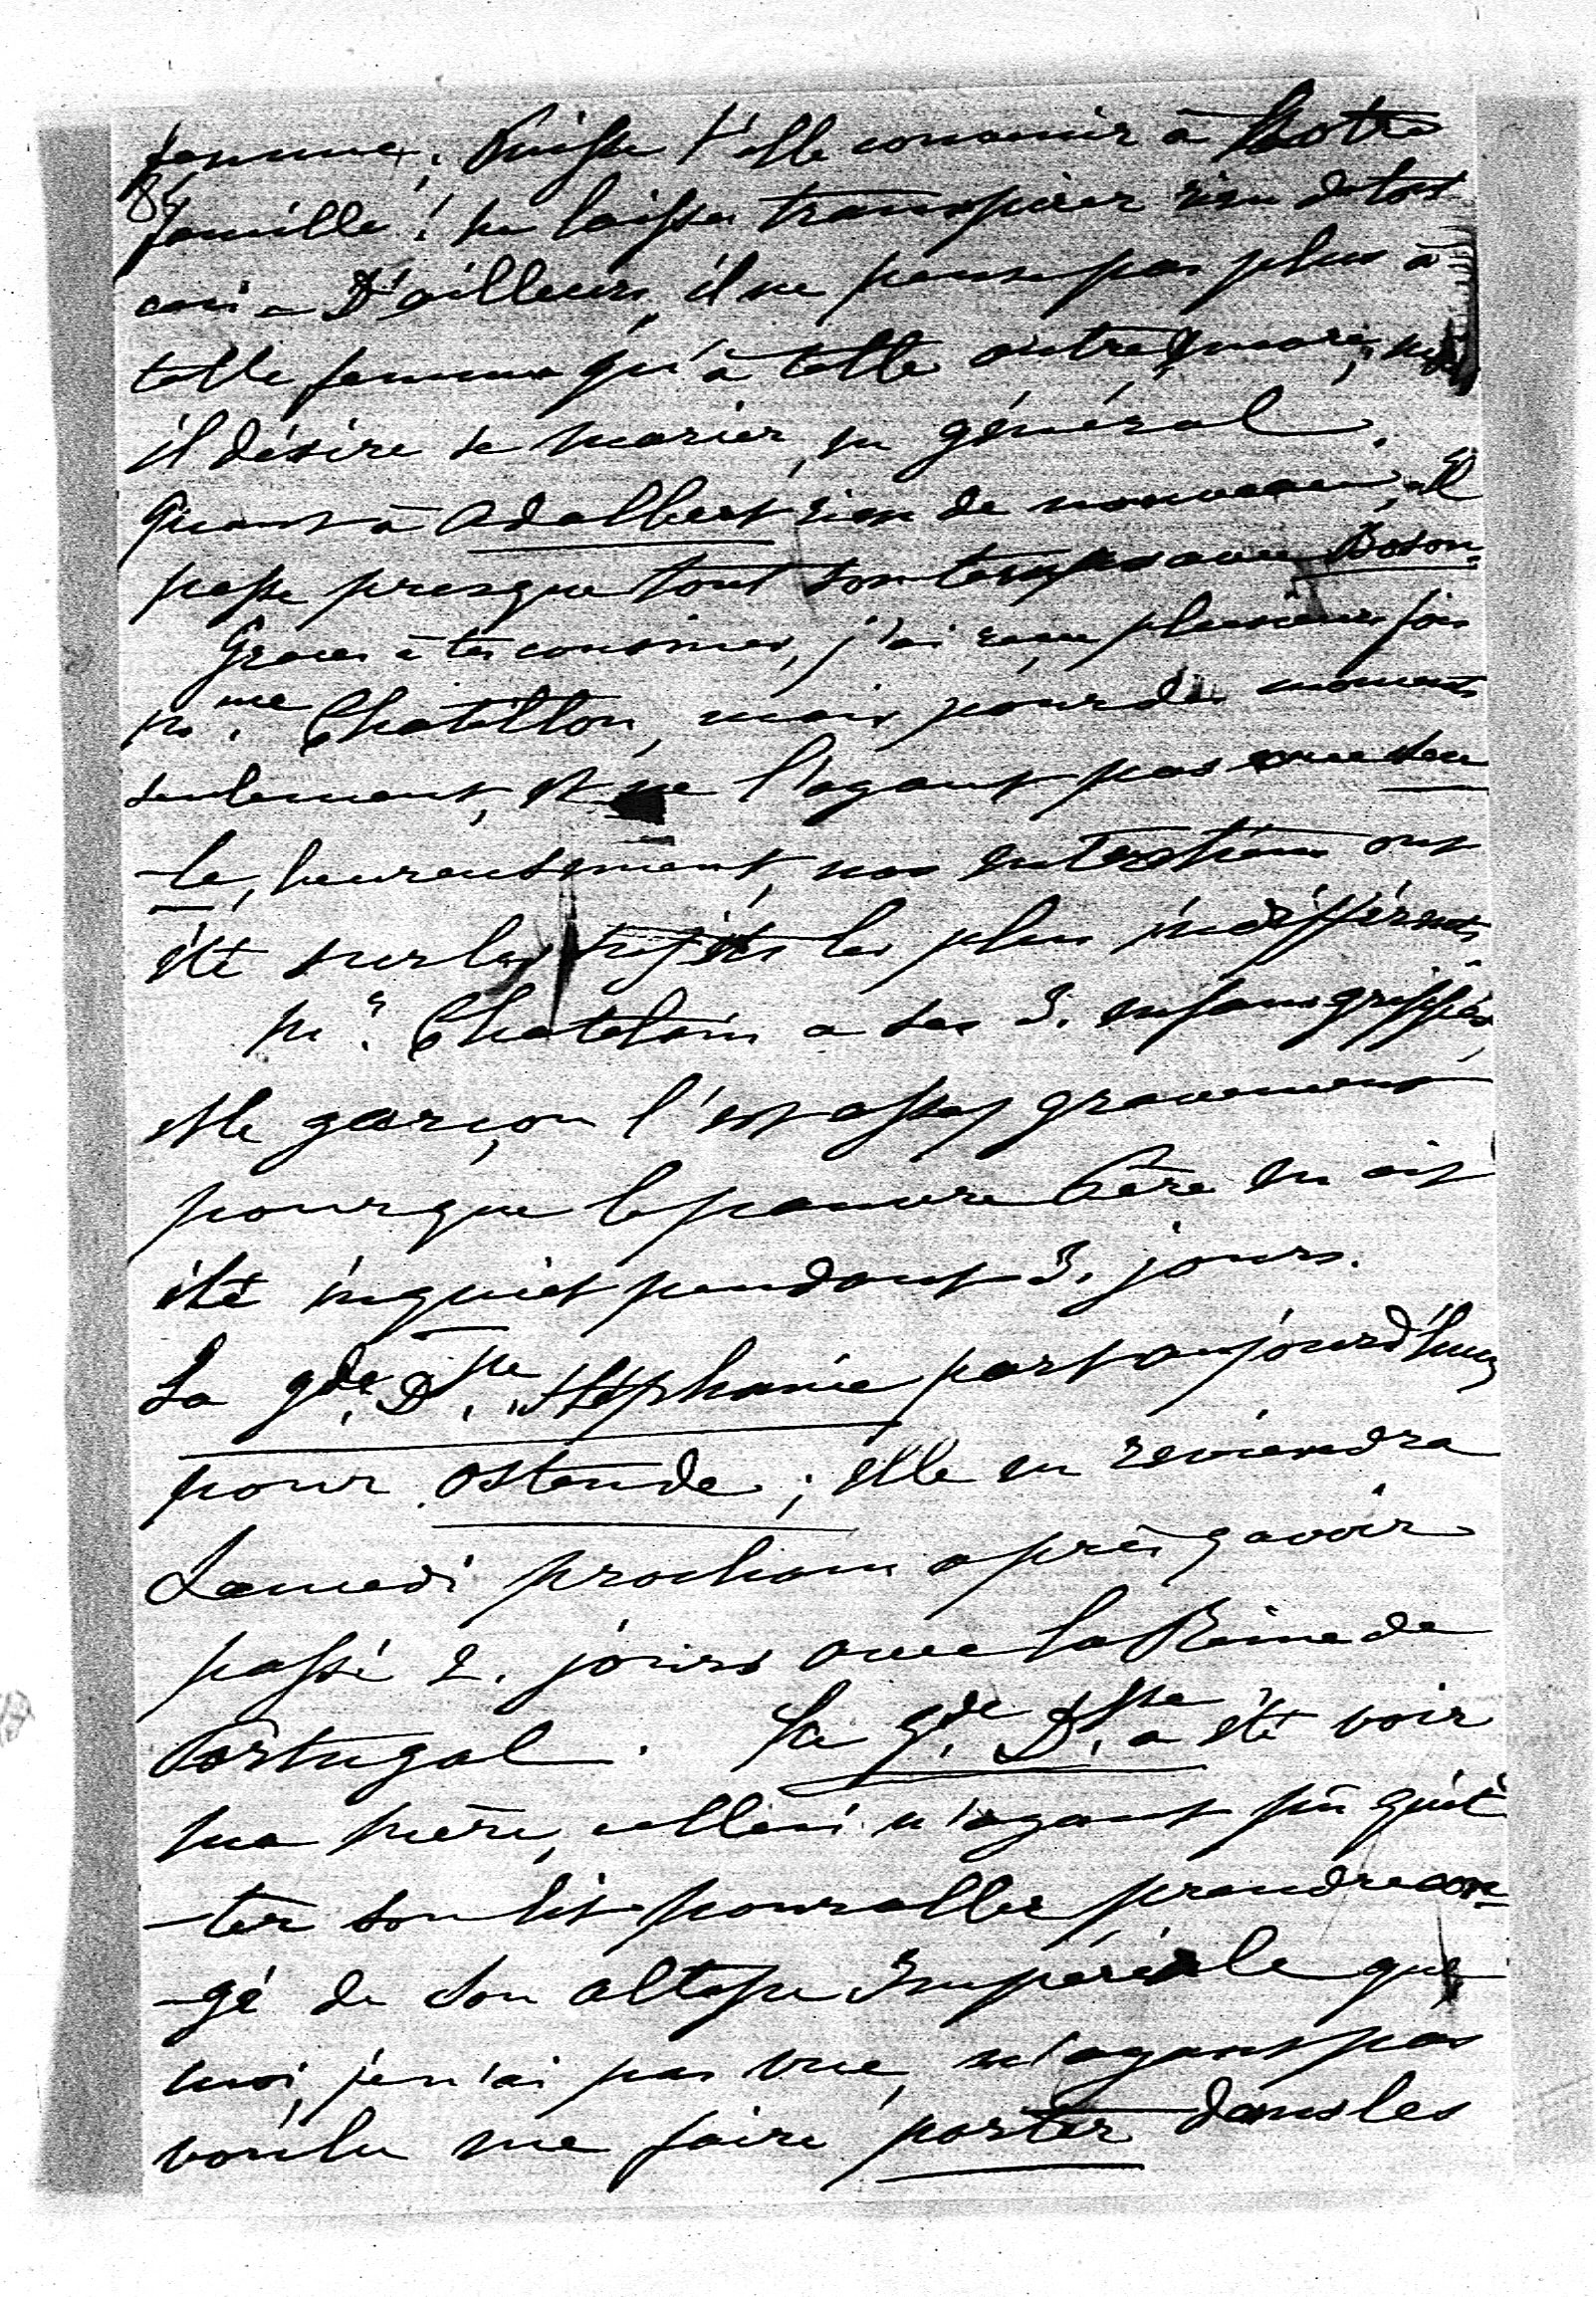 femme; Puisse t'elle convenir à Notre
84
famille! ne laisse transpirer rien de tout
ceci - D'ailleurs, il ne pense pas plus à
telle femme qu'à telle autre,
il désire se marier, en général.
Quant à Adalbert rien de nouveau, il
passe presque tout son temps avec Boson.
Graces à tes cousines, j'ai reçu plusieurs fois
Mme. Chatillon, mais pour des moments
seulement, et ne l'ayant pas vue seu
-le, heureusement, nos entretiens ont
été sur les sujets les plus indifférents
Mr. Chatelain a ses 3. enfans grippés,
et le garçon l'est assez gravement
pour que le pauvre Père en ait
été inquiet pendant 3. jours.
La gde. Dsse. Stéphanie part aujourd'huy
pour Ostende; elle en reviendra
Samedi prochain après y avoir
passé 2. jours avec la Reine de
Portugal. La gde. Dsse. a été voir
ma mère, celle-ci n'ayant pû quit
-ter son lit pour aller prendre con-
-gé de Son Altesse Impériale que
moi, je n'ai pas vue, n'ayant pas
voulu me faire porter dans les